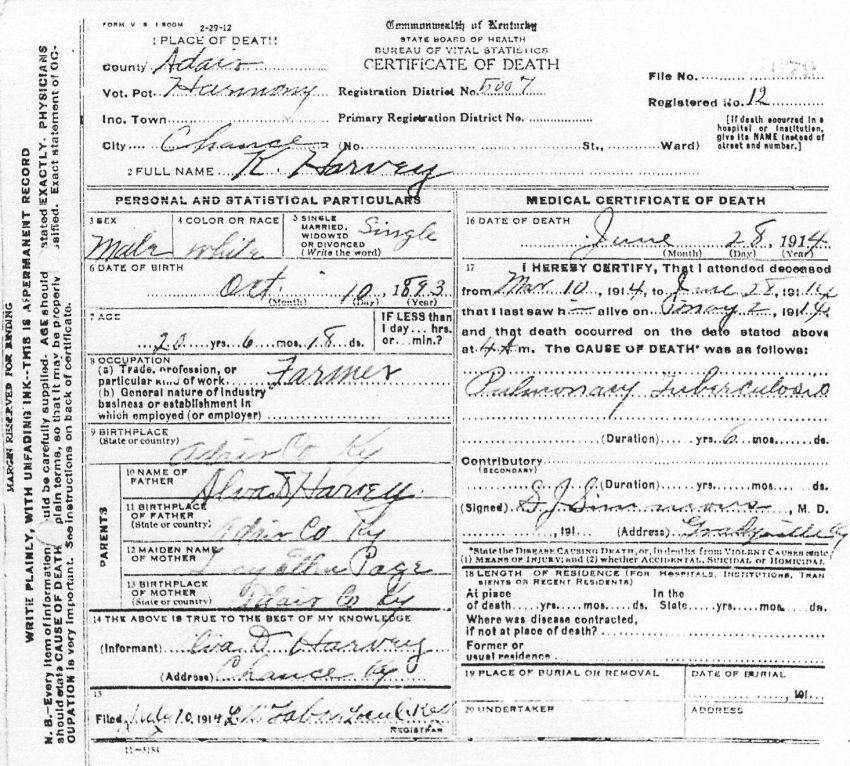 FORM V. S. 1 500M 2-29-12
Commonwealth of Kentucky
STATE BOARD OF HEALTH
BUREAU OF VITAL STATISTICS
CERTIFICATE OF DEATH
1 PLACE OF DEATH
County Adair
Vot. Pct. Harmony
Inc. Town
City Chance
Registration District No. 5007
Primary Registration District No.
(No. St., Ward)
File No.
Registered No. 12
[If death occurred in a
hospital or institution,
give its NAME instead of
street and number.]
2 FULL NAME K. Harvey
PERSONAL AND STATISTICAL PARTICULARS
3 SEX
Male
4 COLOR OR RACE
White
5 SINGLE
MARRIED,
WIDOWED
OR DIVORCED
(Write the word)
Single
6 DATE OF BIRTH
Oct 10, 1893
(Month) (Day) (Year)
7 AGE
20 yrs. 6 mos. 18 ds.
IF LESS than
1 day... hrs.
or... min.?
8 OCCUPATION
(a) Trade, profession, or
particular kind of work Farmer
(b) General nature of industry
business or establishment in
which employed (or employer)
9 BIRTHPLACE
(State or country)
Adair Co Ky
PARENTS
10 NAME OF
FATHER
Alva D Harvey
11 BIRTHPLACE
OF FATHER
(State or country)
Adair Co Ky
12 MAIDEN NAME
OF MOTHER
Page
13 BIRTHPLACE
OF MOTHER
(State or country)
Adair Co Ky
14 THE ABOVE IS TRUE TO THE BEST OF MY KNOWLEDGE
(Informant) Alva D. Harvey
(Address) Chance Ky
15
Filed July 10, 1914
REGISTRAR
11-3184
MEDICAL CERTIFICATE OF DEATH
16 DATE OF DEATH
June 28, 1914
(Month) (Day) (Year)
17 I HEREBY CERTIFY, That I attended deceased
from Mar 10, 1914, to June 28, 1914
that I last saw h alive on 1914
and that death occurred on the date stated above
at 4 A m. The CAUSE OF DEATH* was as follows:
Pulmonary Tuberculosis
(Duration) yrs. 6 mos. ds.
Contributory
(SECONDARY)
(Duration) yrs. mos. ds.
(Signed) S J Simmons, M. D.
, 191 (Address) Gradyville Ky
*State the DISEASE CAUSING DEATH, or, in deaths from VIOLENT CAUSES state
(1) MEANS OF INJURY; and (2) whether ACCIDENTAL, SUICIDAL or HOMICIDAL
18 LENGTH OF RESIDENCE (FOR HOSPITALS, INSTITUTIONS, TRAN
SIENTS OR RECENT RESIDENTS)
At place In the
of death yrs. mos. ds. State yrs. mos. ds.
Where was disease contracted,
if not at place of death?
Former or
usual residence
19 PLACE OF BURIAL OR REMOVAL
DATE OF BURIAL
, 191
20 UNDERTAKER
ADDRESS
MARGIN RESERVED FOR BINDING
WRITE PLAINLY, WITH UNFADING INK--THIS IS A PERMANENT RECORD
N. B.--Every item of information should be carefully supplied. AGE should stated EXACTLY. PHYSICIANS
should state CAUSE OF DEATH plain terms, so that it may be properly classified. Exact statement of OC-
CUPATION is very important. See instructions on back of certificate.